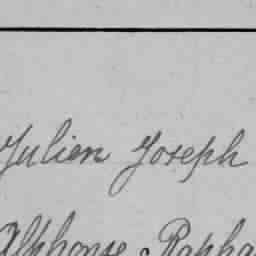 Julien Joseph
Alphonse Rapha